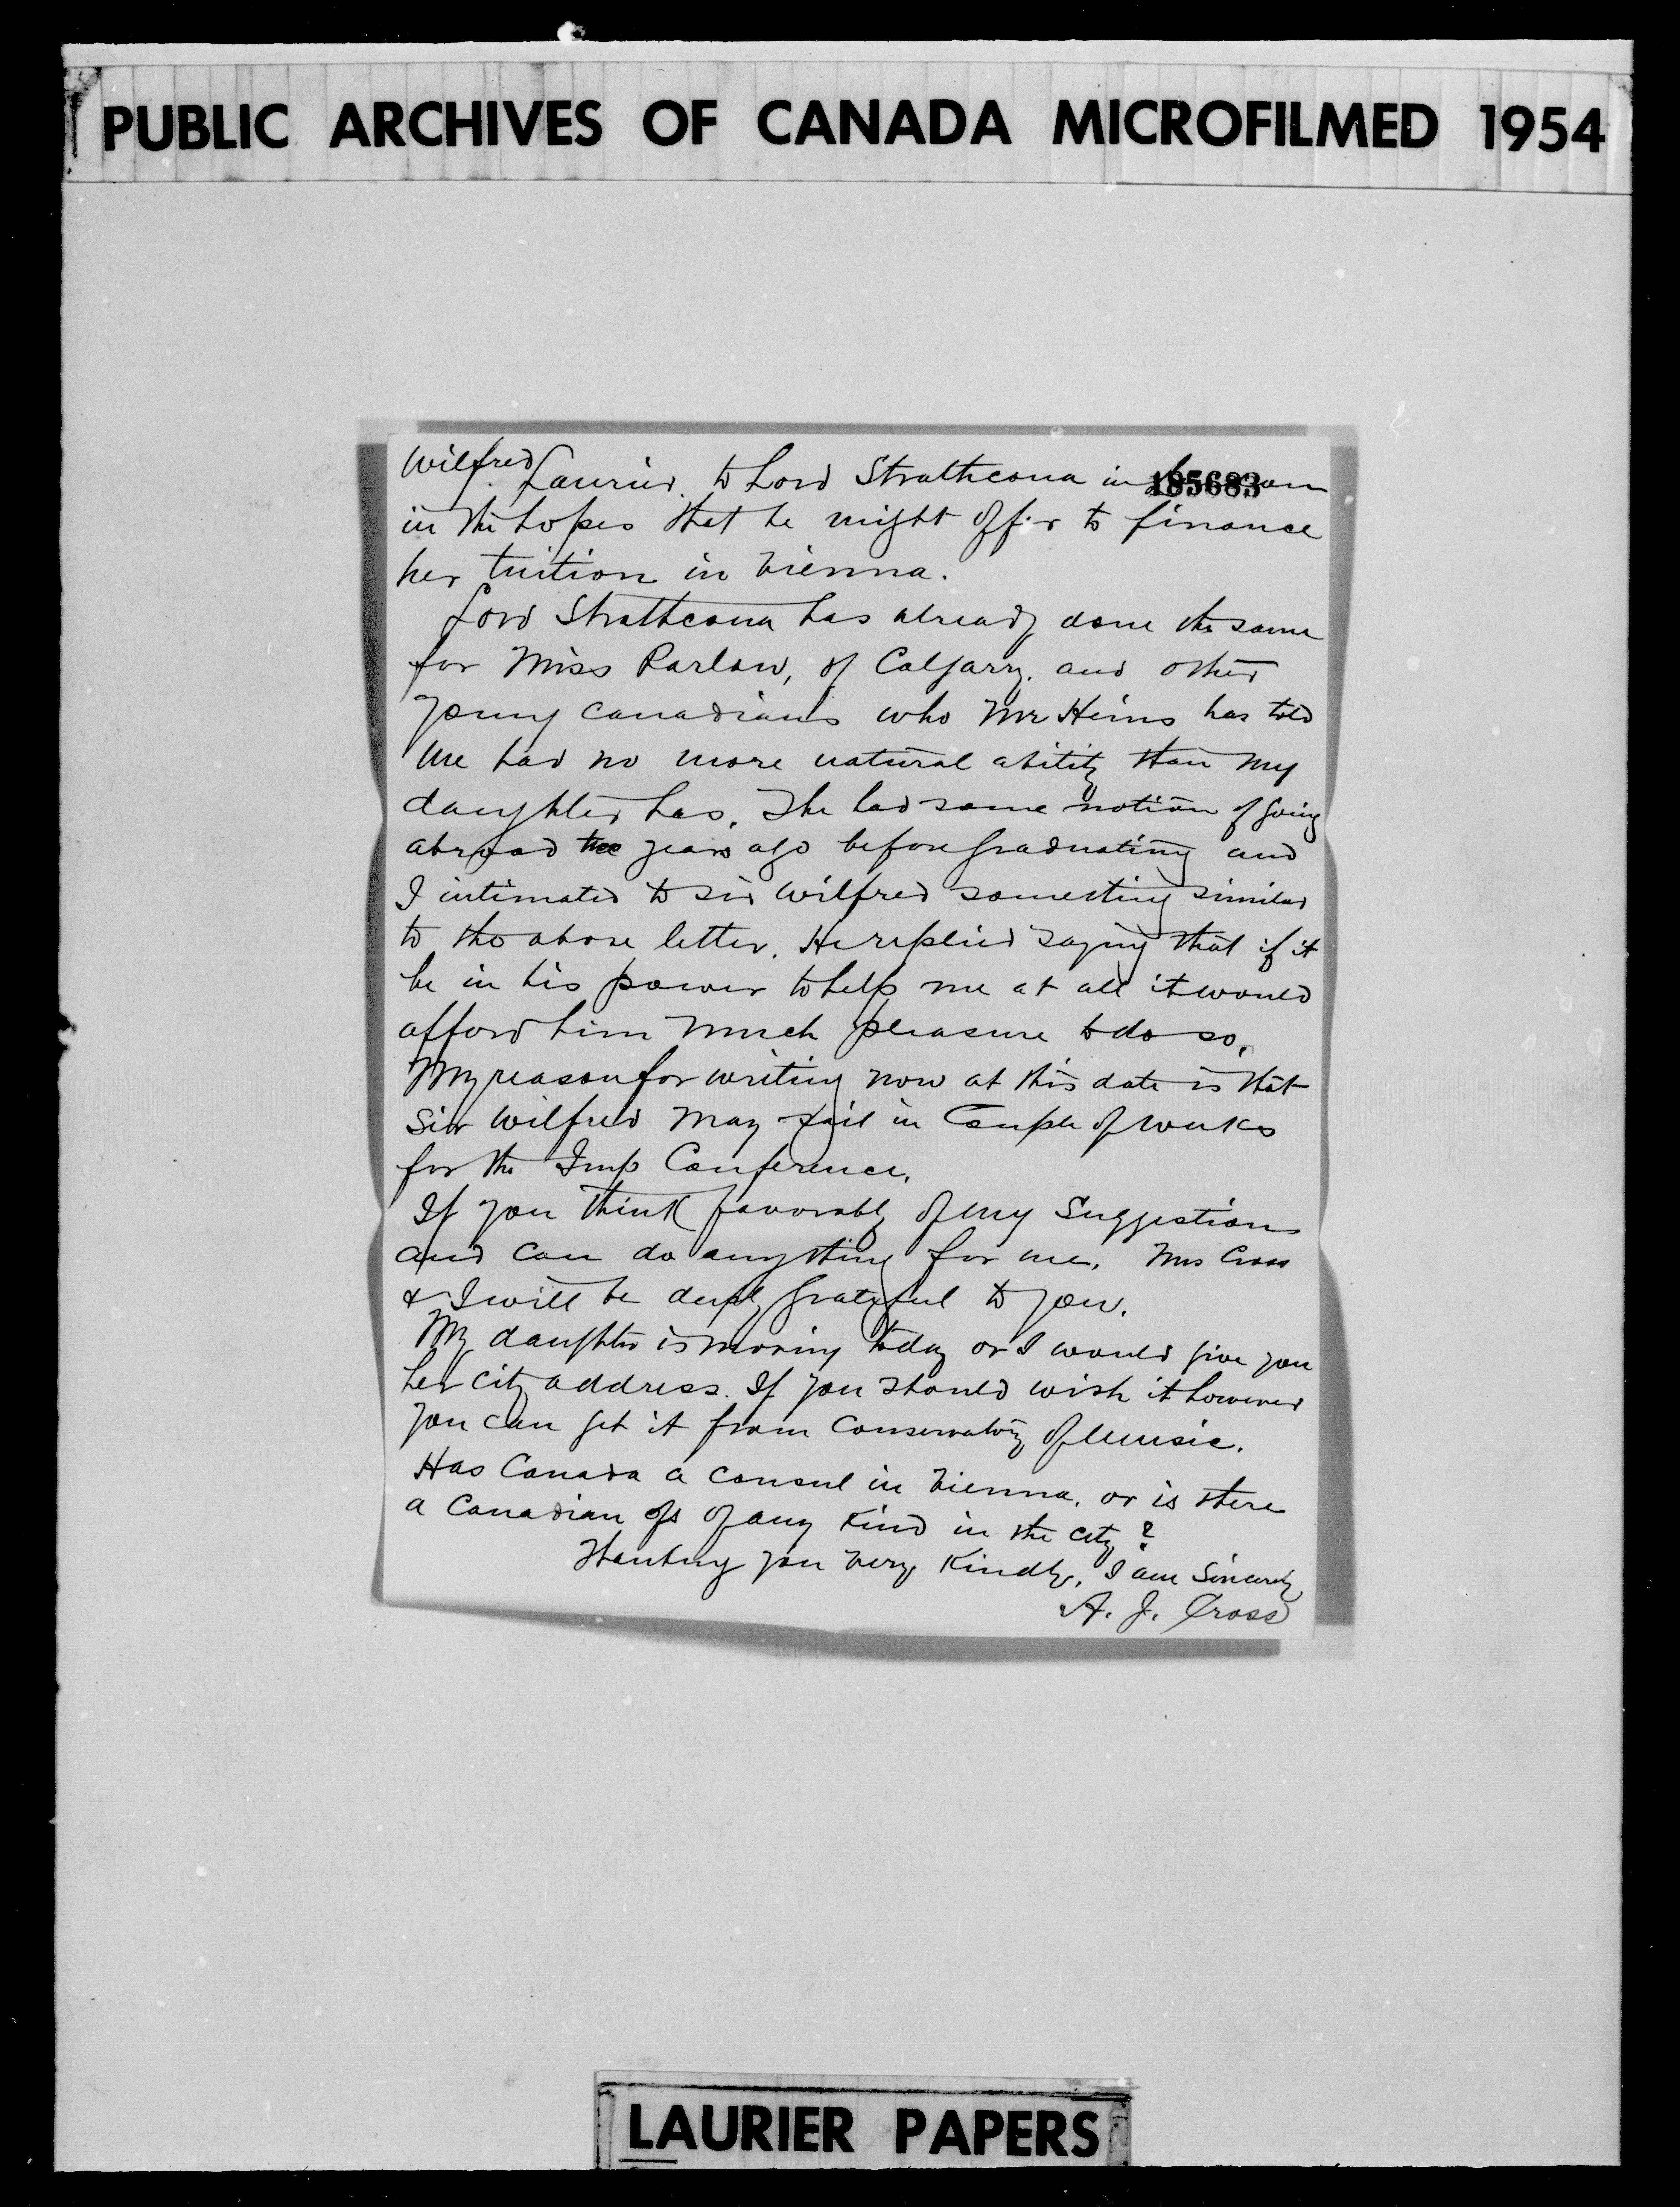 PUBLIC ARCHIVES OF CANADA MICROFILMED 1954
185683
Wilfred Laurier, to Lord Strathcona in
in the hopes that he might offer to finance
her tuition in Vienna.
Lord Strathcona has already done the same
for Miss Parlow, of Calgary, and other
young Canadians who Mr Heins has told
me had no more natural ability than my
daughter has. She had some notion of going
abroad two years ago before graduating and
I intimated to Sir Wilfred something similar
to the above letter. He replied saying that if it
be in his power to help me at all it would
afford him much pleasure to do so.
My reason for writing now at this date is that
Sir Wilfred may sail in Couple of weeks
for the Imp Conference.
If you think favorably of my Suggestion
and can do anything for me, Mrs Cross
& I will be deeply grateful to you.
My daughter is moving today or I would give you
her city address. If you should wish it however
you can get it from Conservatory of Music.
Has Canada a consul in Vienna, or is there
a Canadian of of any kind in the city?
Thanking you very kindly, I am Sincerely
A. J. Cross
LAURIER PAPERS